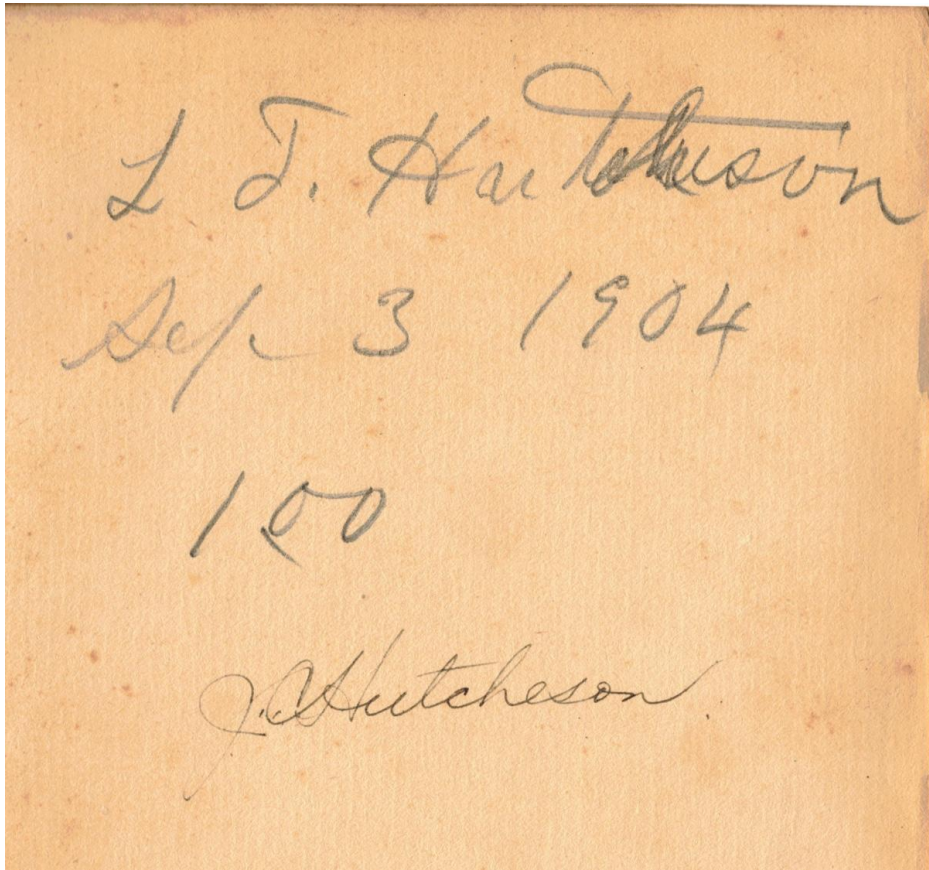 L T. Hutcheson
Sep 3 1904
1 00
J.C. Hutcheson